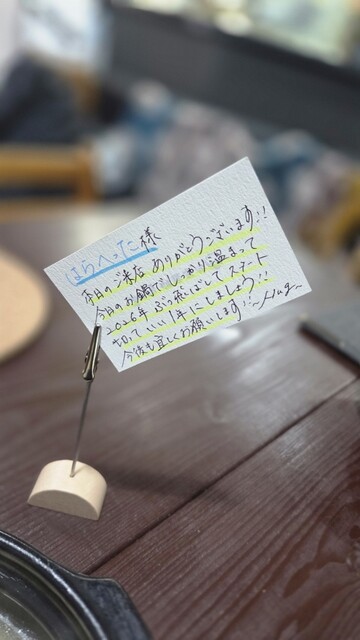 はらへった様
本日のご来店 ありがとうございます!!
今日のお鍋でしっかり温まって
2026年 ぶっ飛ばしてスタート
切って いい1年にしましょう!!
今後も宜しくお願いします!!